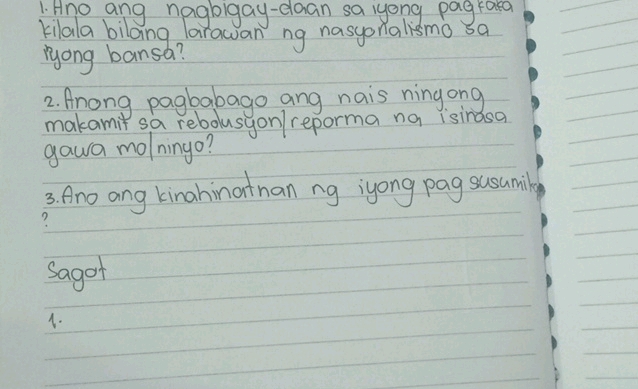 1. Ano ang nagbigay-daan sa iyong pagkaka
kilala bilang larawan ng nasyonalismo sa
iyong bansa?
2. Anong pagbabago ang nais ninyong
makamit sa rebolusyon/reporma na isinasa
gawa mo/ninyo?
3. Ano ang kinahinatnan ng iyong pagsusumikap
?
Sagot
1.